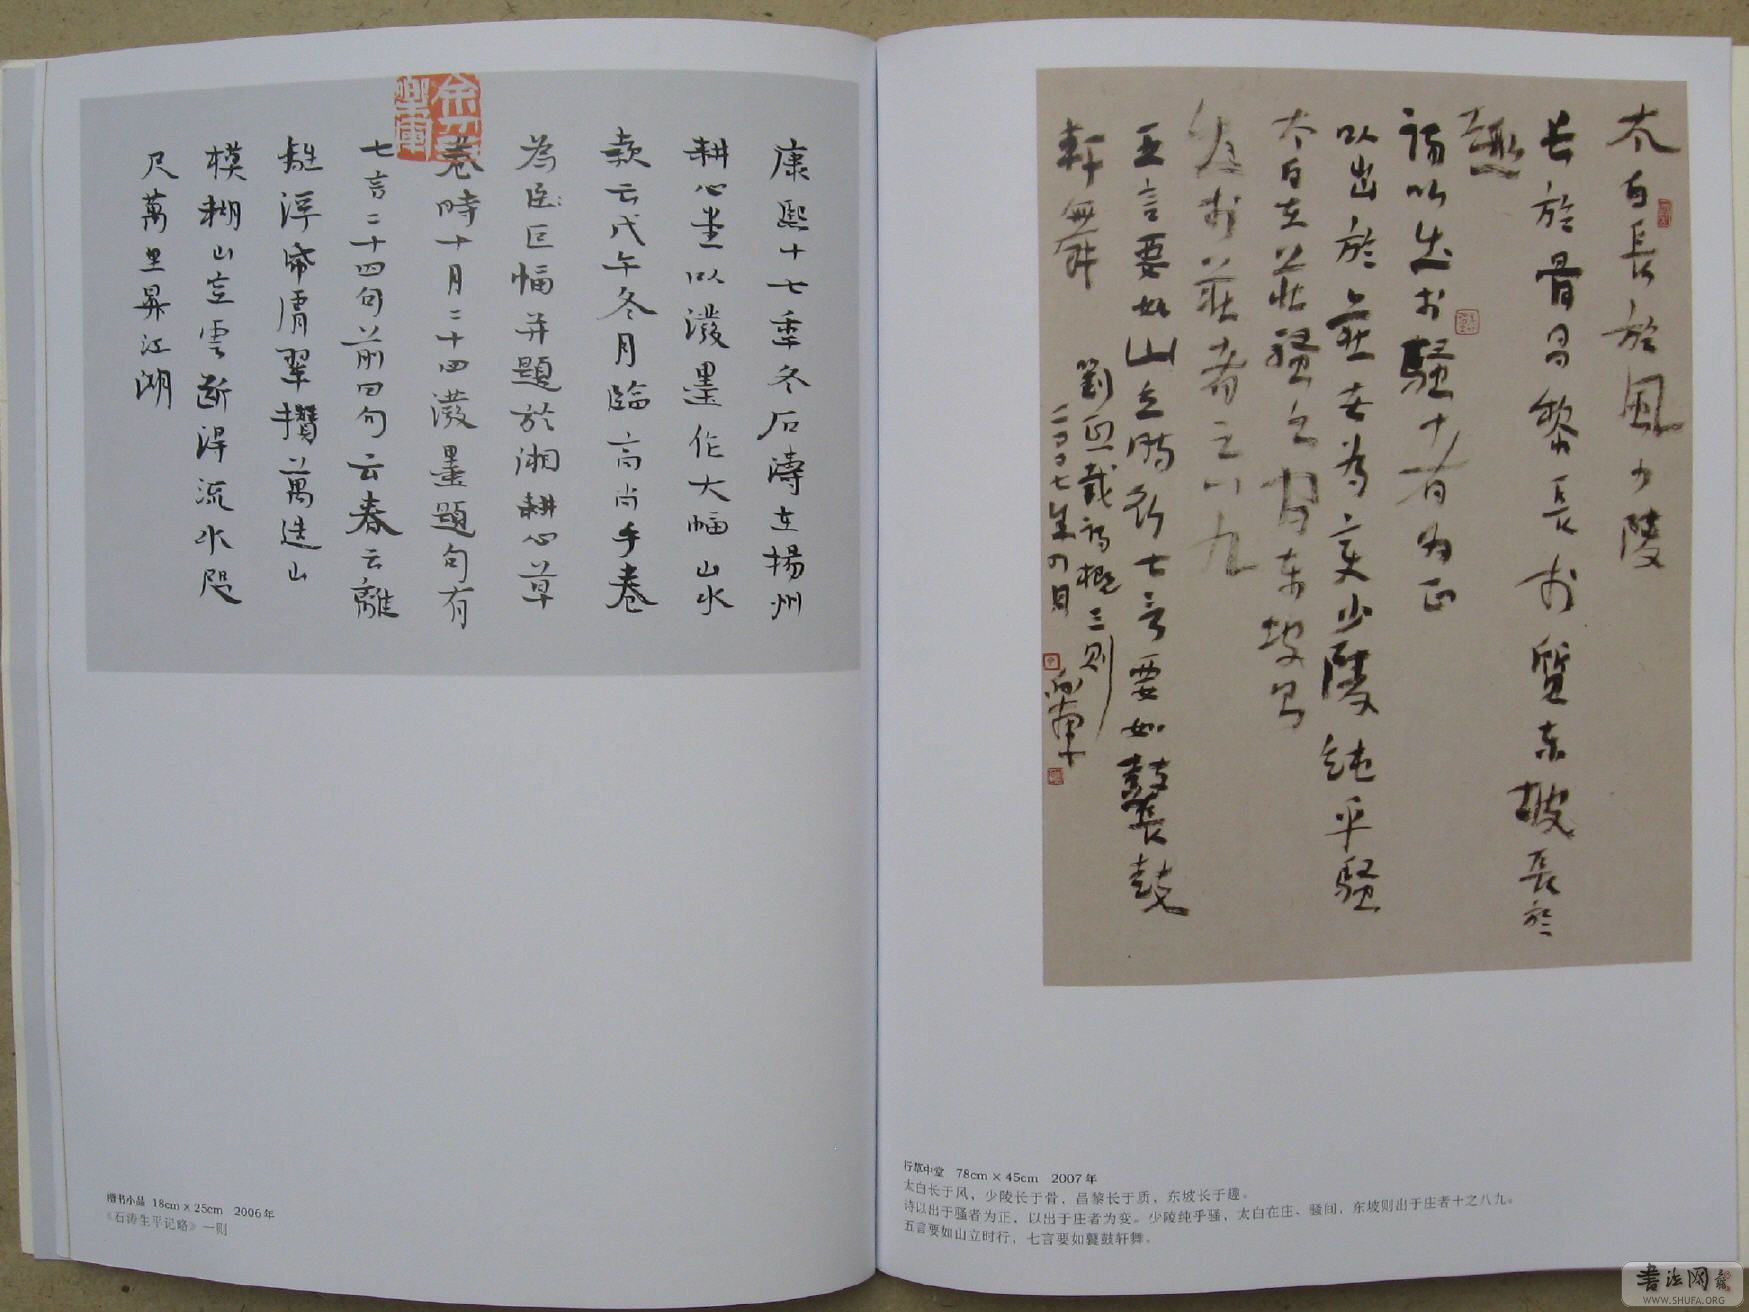 康熙十七季冬石濤在揚州
耕心堂以潑墨作大幅山水
款云戊午冬月臨高尚手卷
為臣巨幅并題於湘耕心草
卷時十月二十四潑墨題句有
七言二十四句前四句云春云離
離浮席膚翠攢萬迭山
模糊山雲斷得流水咫
尺萬里異江湖
楷书小品 18cm×25cm 2006年
《石涛生平记略》一则
太白長於風少陵
長於骨昌黎長於質東坡長於
趣
詩以出於騷者為正
以出於莊者為变少陵純乎騷
太白在莊騷之間東坡則
出於莊者之八九
五言要如山立時行七言要如鼚鼓
軒舞
劉熙載詩概三則
二〇〇七年四月
行草中堂 78cm×45cm 2007年
太白长于风，少陵长于骨，昌黎长于质，东坡长于趣。
诗以出于骚者为正，以出于庄者为变。少陵纯乎骚，太白在庄、骚间，东坡则出于庄者十之八九。
五言要如山立时行，七言要如鼚鼓轩舞。
書法网
WWW.SHUFA.ORG